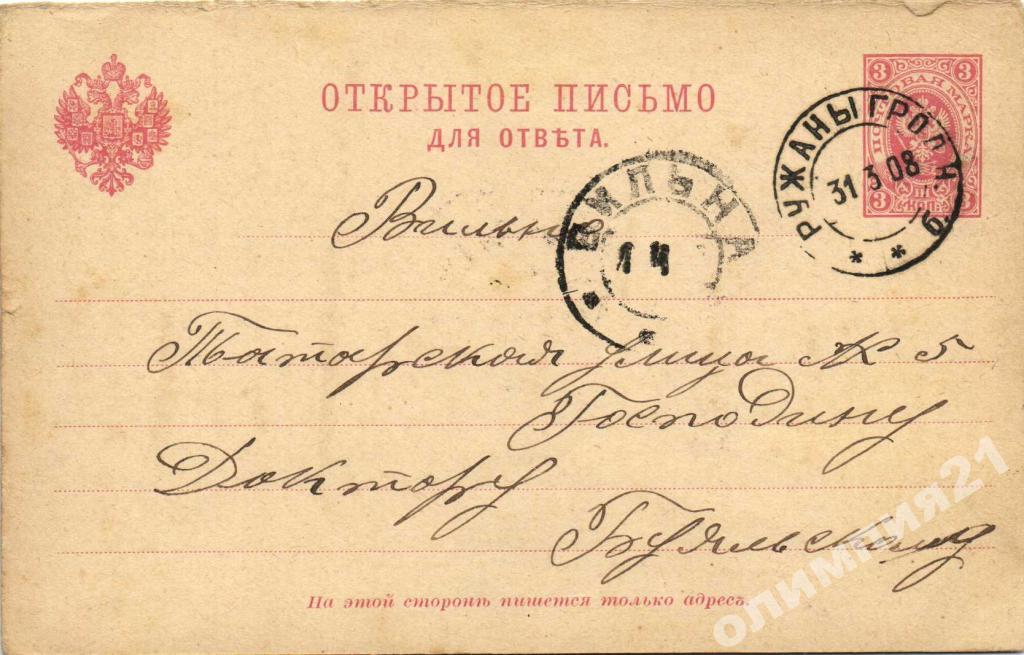 ОТКРЫТОЕ ПИСЬМО
ДЛЯ ОТВѢТА.
3 3
ПОЧТОВАЯ МАРКА
3 КОП. 3
РУЖАНЫ ГРОДН. Г.
31 3 08
ВИЛЬНА
14
Вильно
Татарская улица № 5
Господину
Доктору
На этой сторонѣ пишется только адресъ.
олимпия21